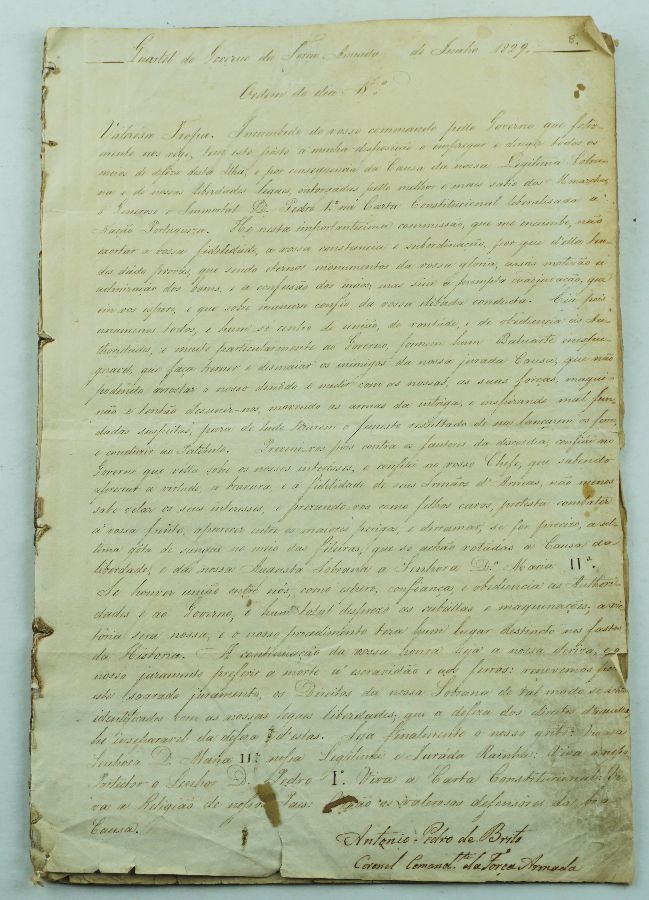 Quartel do Governo da Força Armada de Junho 1829. 8.
Ordem do dia N.º
Valorosa Tropa. Incumbido do vosso commando pello Governo que felis-
mente nos rege, tem este posto á minha disposição o empregar e dirigir todos os
meios de defeza desta Ilha, e por consequencia da Causa da nossa Legitima Sobra-
na e de nossas liberdades legaes, outorgadas pello melhor e mais sabio dos Monarchas
o Generoso e Immortal D. Pedro 1.º na Carta Constitucional liberalisada á
Nação Portugueza. He nesta importantissima commissão, que me incumbe, não
exortar a vossa fidelidade, a vossa constancia e subordinação, por que d'ellas ten-
des dado provas, que sendo eternos monumentos da vossa gloria, assas motivão a
admiração dos bons, e a confusão dos maos; mas sim a prompta coadjuvação, que
em vos espero, e que sobre maneira confio da vossa illibada conducta. Eia pois
unamonos todos, e hum só centro de união, de vontade, e de obediencia ás Au-
thoridades, e muito particularmente ao Governo, formem hum Baluarte inexpu-
gnavel, que faça tremer e desmaiar os inimigos da nossa jurada Causa; que não
podendo arrostar o nosso denodo e medir com as nossas, as suas forças, maqui-
não e tentão desunir-nos, movendo as armas da intriga, e inspirando mal fun-
dadas suspeitas, para de tudo tirarem o funesto resultado de nos lançarem os ferros
e conduzir ao Patibulo. Preveni-vos pois contra os fautores da discordia; confiai no
Governo que vella sobre os nossos interesses, e confiai no vosso Chefe, que sabendo
apreciar a virtude, a bravura, e a fidelidade de seus Irmãos d'Armas, não menos
sabe zelar os seus interesses, e prezando-vos como filhos caros, protesta combater
á vossa frente, aparecer entre os maiores perigos, e derramar, se for preciso, a ul-
tima gota de sangue no meio das fileiras, que se achão votadas á Causa da
liberdade, e da nossa Augusta Sobrana a Senhora D.ª Maria IIª.
Se houver união entre nós, como espero, confiança, e obediencia as Authori-
dades e ao Governo, e hum total disprezo as caballas e maquinações, a vic-
toria será nossa, e o nosso procedimento tera hum lugar destincto nos fastos
da Historia. A continuação da vossa honra seja a nossa deviza, e o
nosso juramento preferir a morte á escravidão e aos ferros: renovemos pois
este sagrado juramento, os Direitos da nossa Sobrana de tal modo se achão
identificados com as nossas legaes liberdades, que a defeza dos direitos d'aquella
he inseparavel da defeza d'estas. Seja finalmente o nosso grito: Viva a
Senhora D. Maria IIª nossa Legitima e Jurada Rainha: Viva o nosso
Protector o Senhor D. Pedro Iº. Viva a Carta Constitucional: Vi-
va a Religião de nossos Pais: Vivão os valorosos defensores da boa
Causa.
Antonio Pedro de Brito
Coronel Comand.te da Força Armada